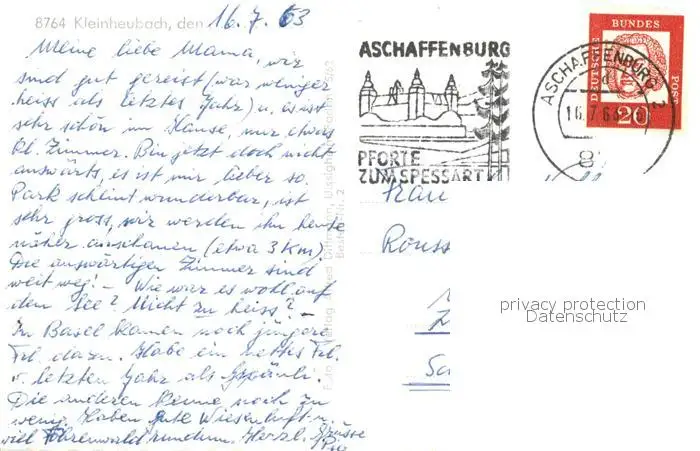 8764 Kleinheubach, den 16.7.63
Meine liebe Mama, wir
sind gut gereist (war weniger
heiss als letztes Jahr) u. es ist
sehr schön im Hause, nur etwas
kl. Zimmer. Bin jetzt doch nicht
auswärts, es ist mir lieber so.
Park scheint wunderbar, ist
sehr gross, wir werden ihn heute
näher anschauen (etwa 3 Km).
Die auswärtigen Zimmer sind
weit weg! - Wie war es wohl auf
dem See? Nicht zu heiss? -
In Basel kamen noch jüngere
Frl. dazu. Habe ein nettes Frl.
v. letzten Jahr als Gspänli.
Die anderen kenne noch zu
wenig. Haben gute Wiesenluft u.
viel Föhrenwald rundum. Herzl. Grüsse
ASCHAFFENBURG
PFORTE
ZUM SPESSART
ASCHAFFENBURG 2
16.7.63
DEUTSCHE
BUNDES
POST
20
Frau
Rouss
privacy protection
Datenschutz